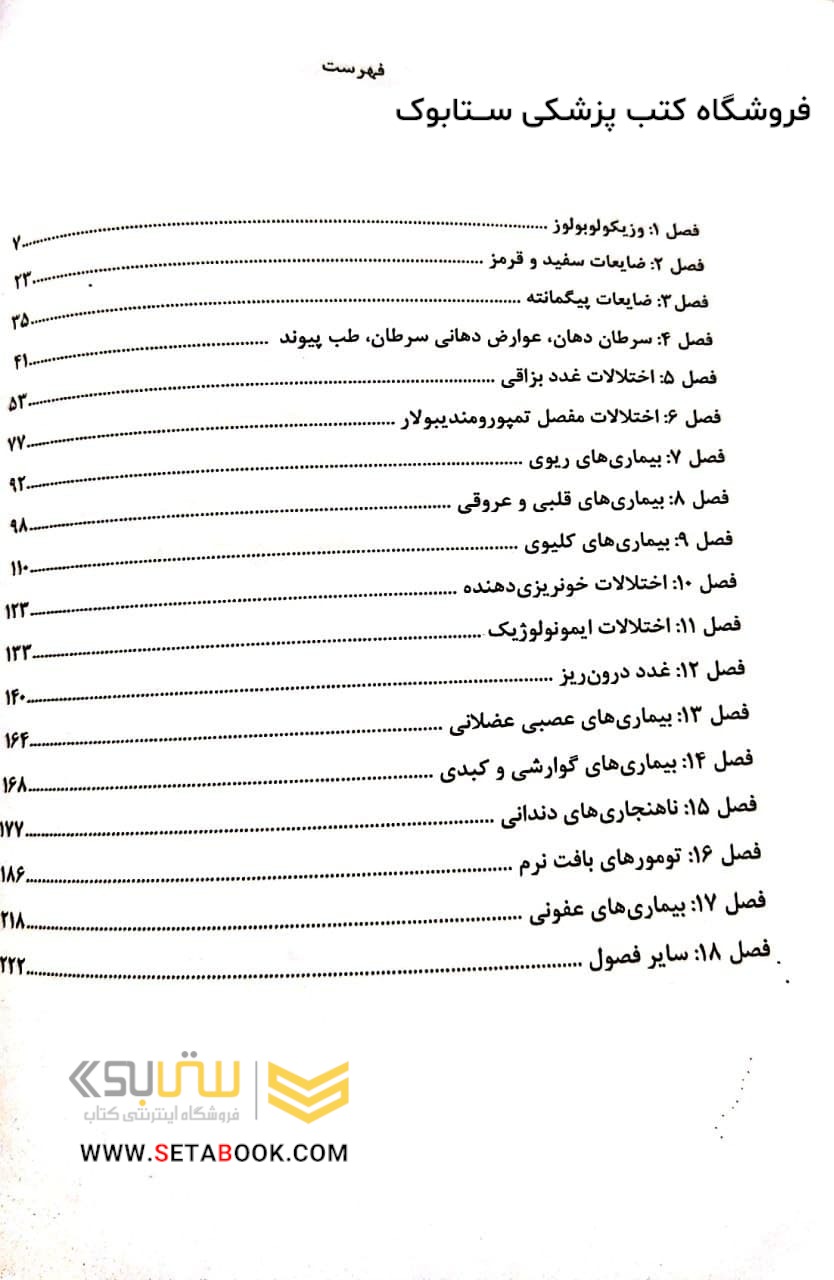 فهرست
فروشگاه کتب پزشکی ستابوک
فصل ۱: وزیکولوبولوز ........ ۷
فصل ۲: ضایعات سفید و قرمز ........ ۲۳
فصل ۳: ضایعات پیگمانته ........ ۳۵
فصل ۴: سرطان دهان، عوارض دهانی سرطان، طب پیوند ........ ۴۱
فصل ۵: اختلالات غدد بزاقی ........ ۵۳
فصل ۶: اختلالات مفصل تمپورومندیبولار ........ ۷۷
فصل ۷: بیماری‌های ریوی ........ ۹۲
فصل ۸: بیماری‌های قلبی و عروقی ........ ۹۸
فصل ۹: بیماری‌های کلیوی ........ ۱۱۰
فصل ۱۰: اختلالات خونریزی‌دهنده ........ ۱۲۳
فصل ۱۱: اختلالات ایمونولوژیک ........ ۱۳۳
فصل ۱۲: غدد درون‌ریز ........ ۱۴۰
فصل ۱۳: بیماری‌های عصبی عضلانی ........ ۱۶۴
فصل ۱۴: بیماری‌های گوارشی و کبدی ........ ۱۶۸
فصل ۱۵: ناهنجاری‌های دندانی ........ ۱۷۷
فصل ۱۶: تومورهای بافت نرم ........ ۱۸۶
فصل ۱۷: بیماری‌های عفونی ........ ۲۱۸
فصل ۱۸: سایر فصول ........ ۲۲۲
ستابوک
فروشگاه اینترنتی کتاب
WWW.SETABOOK.COM